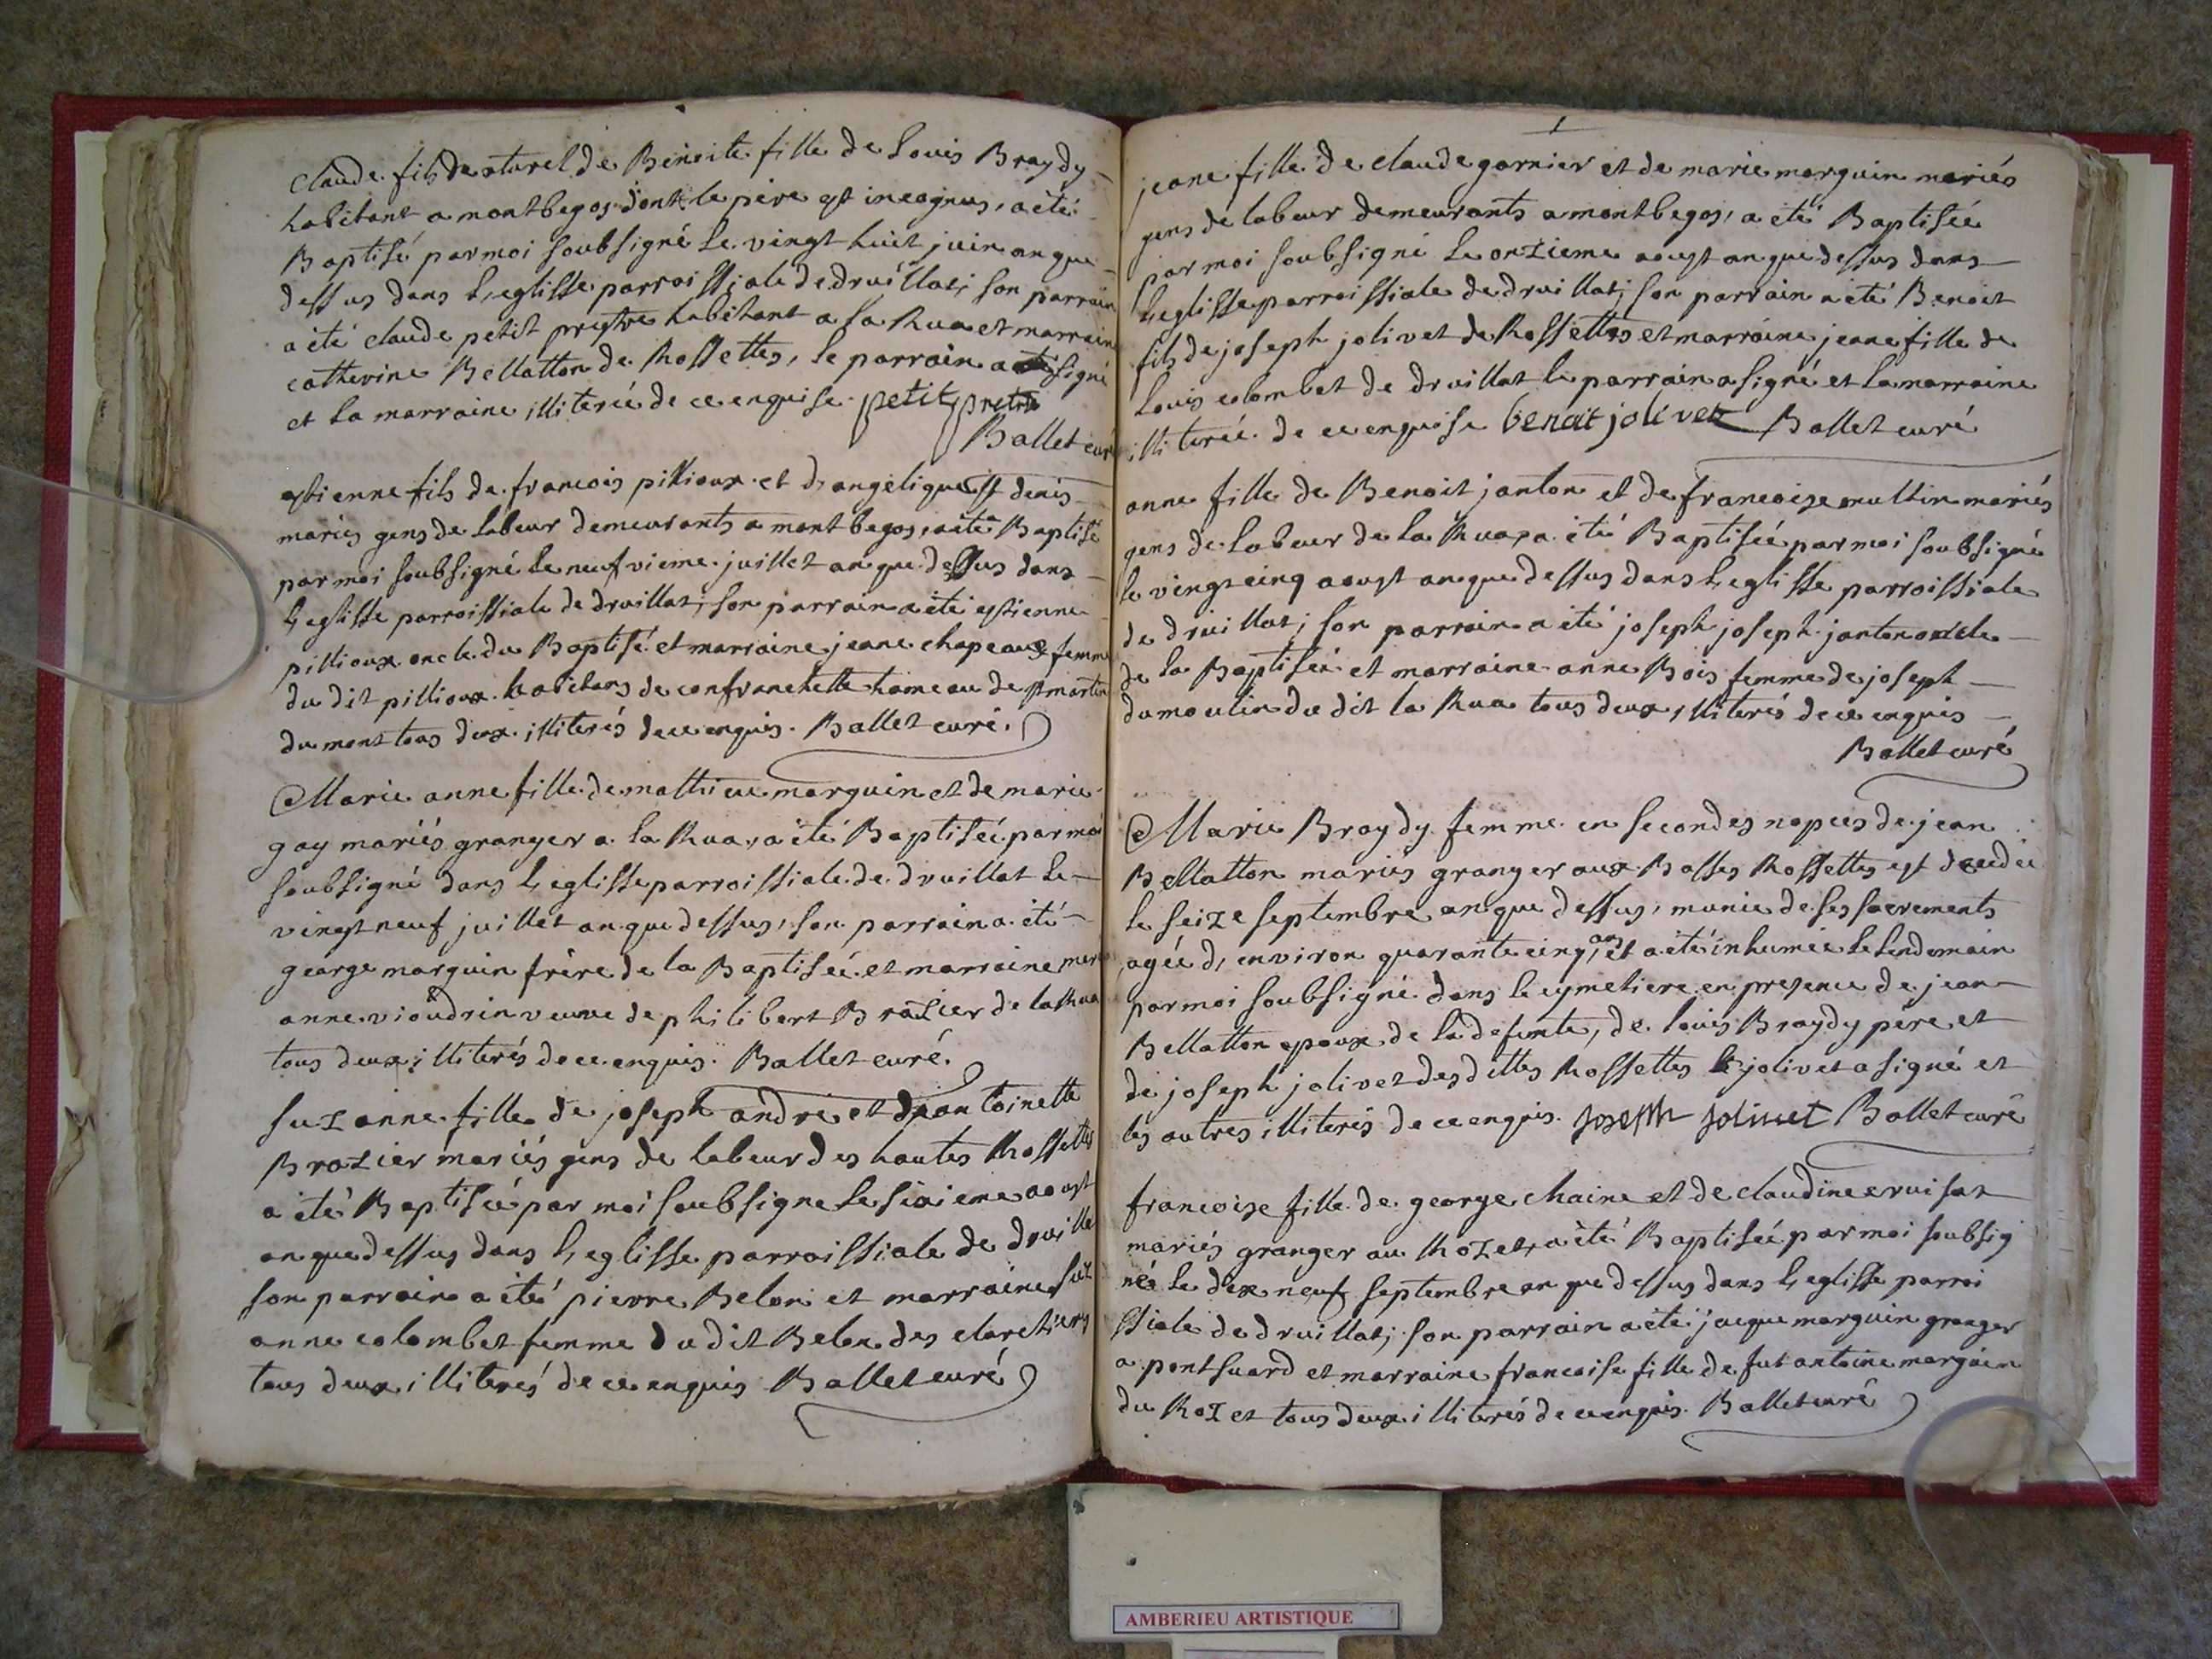 claude fils naturel de Benoite fille de Louis Braydy
habitant a montbegos dont le pere est incognus, a été
Baptisé par moi soubsigné le vingt huit juin an que
dessus dans l'eglisse parroissiale de druillat, son parrain
a été claude petit prestre habitant a la Rua et marraine
catherine Bellatton de Rossettes, le parrain a signé
et la marraine illiterée de ce enquise. petit pretre
Ballet curé
estienne fils de francois pillioux et d'angelique st denis
mariés gens de labeur demeurants a montbegos, a été Baptisé
par moi soubsigné le neufvieme juillet an que dessus dans
l'eglisse parroissiale de druillat; son parrain a été estienne
pillioux oncle du Baptisé et marraine jeane chapeaux femme
du dit pillioux habitans de confranchette hameau de st martin
du mont tous deux illiterés de ce enquis. Ballet curé.
Marie anne fille de matthieu marguin et de marie
gay mariés granger a la Rua, a été Baptisée par moi
soubsigné dans l'eglisse parroissiale de druillat le
vingt neuf juillet an que dessus, son parrain a été
george marguin frère de la Baptisée et marraine
anne vioudrin veuve de philibert Brazier de la Rua
tous deux illiterés de ce enquis. Ballet curé.
suzanne fille de joseph andré et d'eantoinette
Brazier mariés gens de labeur des hautes Rossettes
a été Baptisée par moi soubsigne le sixieme aoust
an que dessus dans l'eglisse parroissiale de druilla
son parrain a été pierre Belon et marraine suz
anne colombet femme du dit Belon des claretiers
tous deux illiterés de ce enquis Ballet curé
jeane fille de claude garnier et de marie marguin mariés
gens de labeur demeurants a montbegos, a été Baptisée
par moi soubsigné le onzieme aoust an que dessus dans
l'eglisse parroissiale de druillat; son parrain a été Benoit
fils de joseph jolivet de Rossettes et marraine jeane fille de
Louis colombet de druillat le parrain a signé et la marraine
illiterée de ce enquise benoit jolivet Ballet curé
anne fille de Benoit janton et de francoise multin mariés
gens de labeur de la Rua, a été Baptisée par moi soubsigné
le vingt cinq aoust an que dessus dans l'eglisse parroissiale
de druillat; son parrain a été joseph joseph janton oncle
de la Baptisée et marraine anne Bois femme de joseph
dumoulin du dit la Rua tous deux illiterés de ce enquis
Ballet curé
Marie Braydy femme en secondes nopces de jean
Bellatton mariés granger aux Basses Rossettes est decedée
le seize septembre an que dessus, munie de ses sacrements
agée d'environ quarante cinq ans, et a été inhumée le lendemain
par moi soubsigné dans le cymetiere en presence de jean
Bellatton epoux de la defunte, de louis Braydy père et
de joseph jolivet des dittes Rossettes le jolivet a signé et
les autres illiterés de ce enquis. joseph jolivet Ballet curé
francoise fille de george chaine et de claudine cruisat
mariés granger au Rozet, a été Baptisée par moi soubsig
né le dix neuf septembre an que dessus dans l'eglisse parroi
ssiale de druillat; son parrain a été jacque marguin granger
a pont suard et marraine francoise fille de fut antoine marguin
du Rozet tous deux illiterés de ce enquis. Ballet curé
AMBERIEU ARTISTIQUE